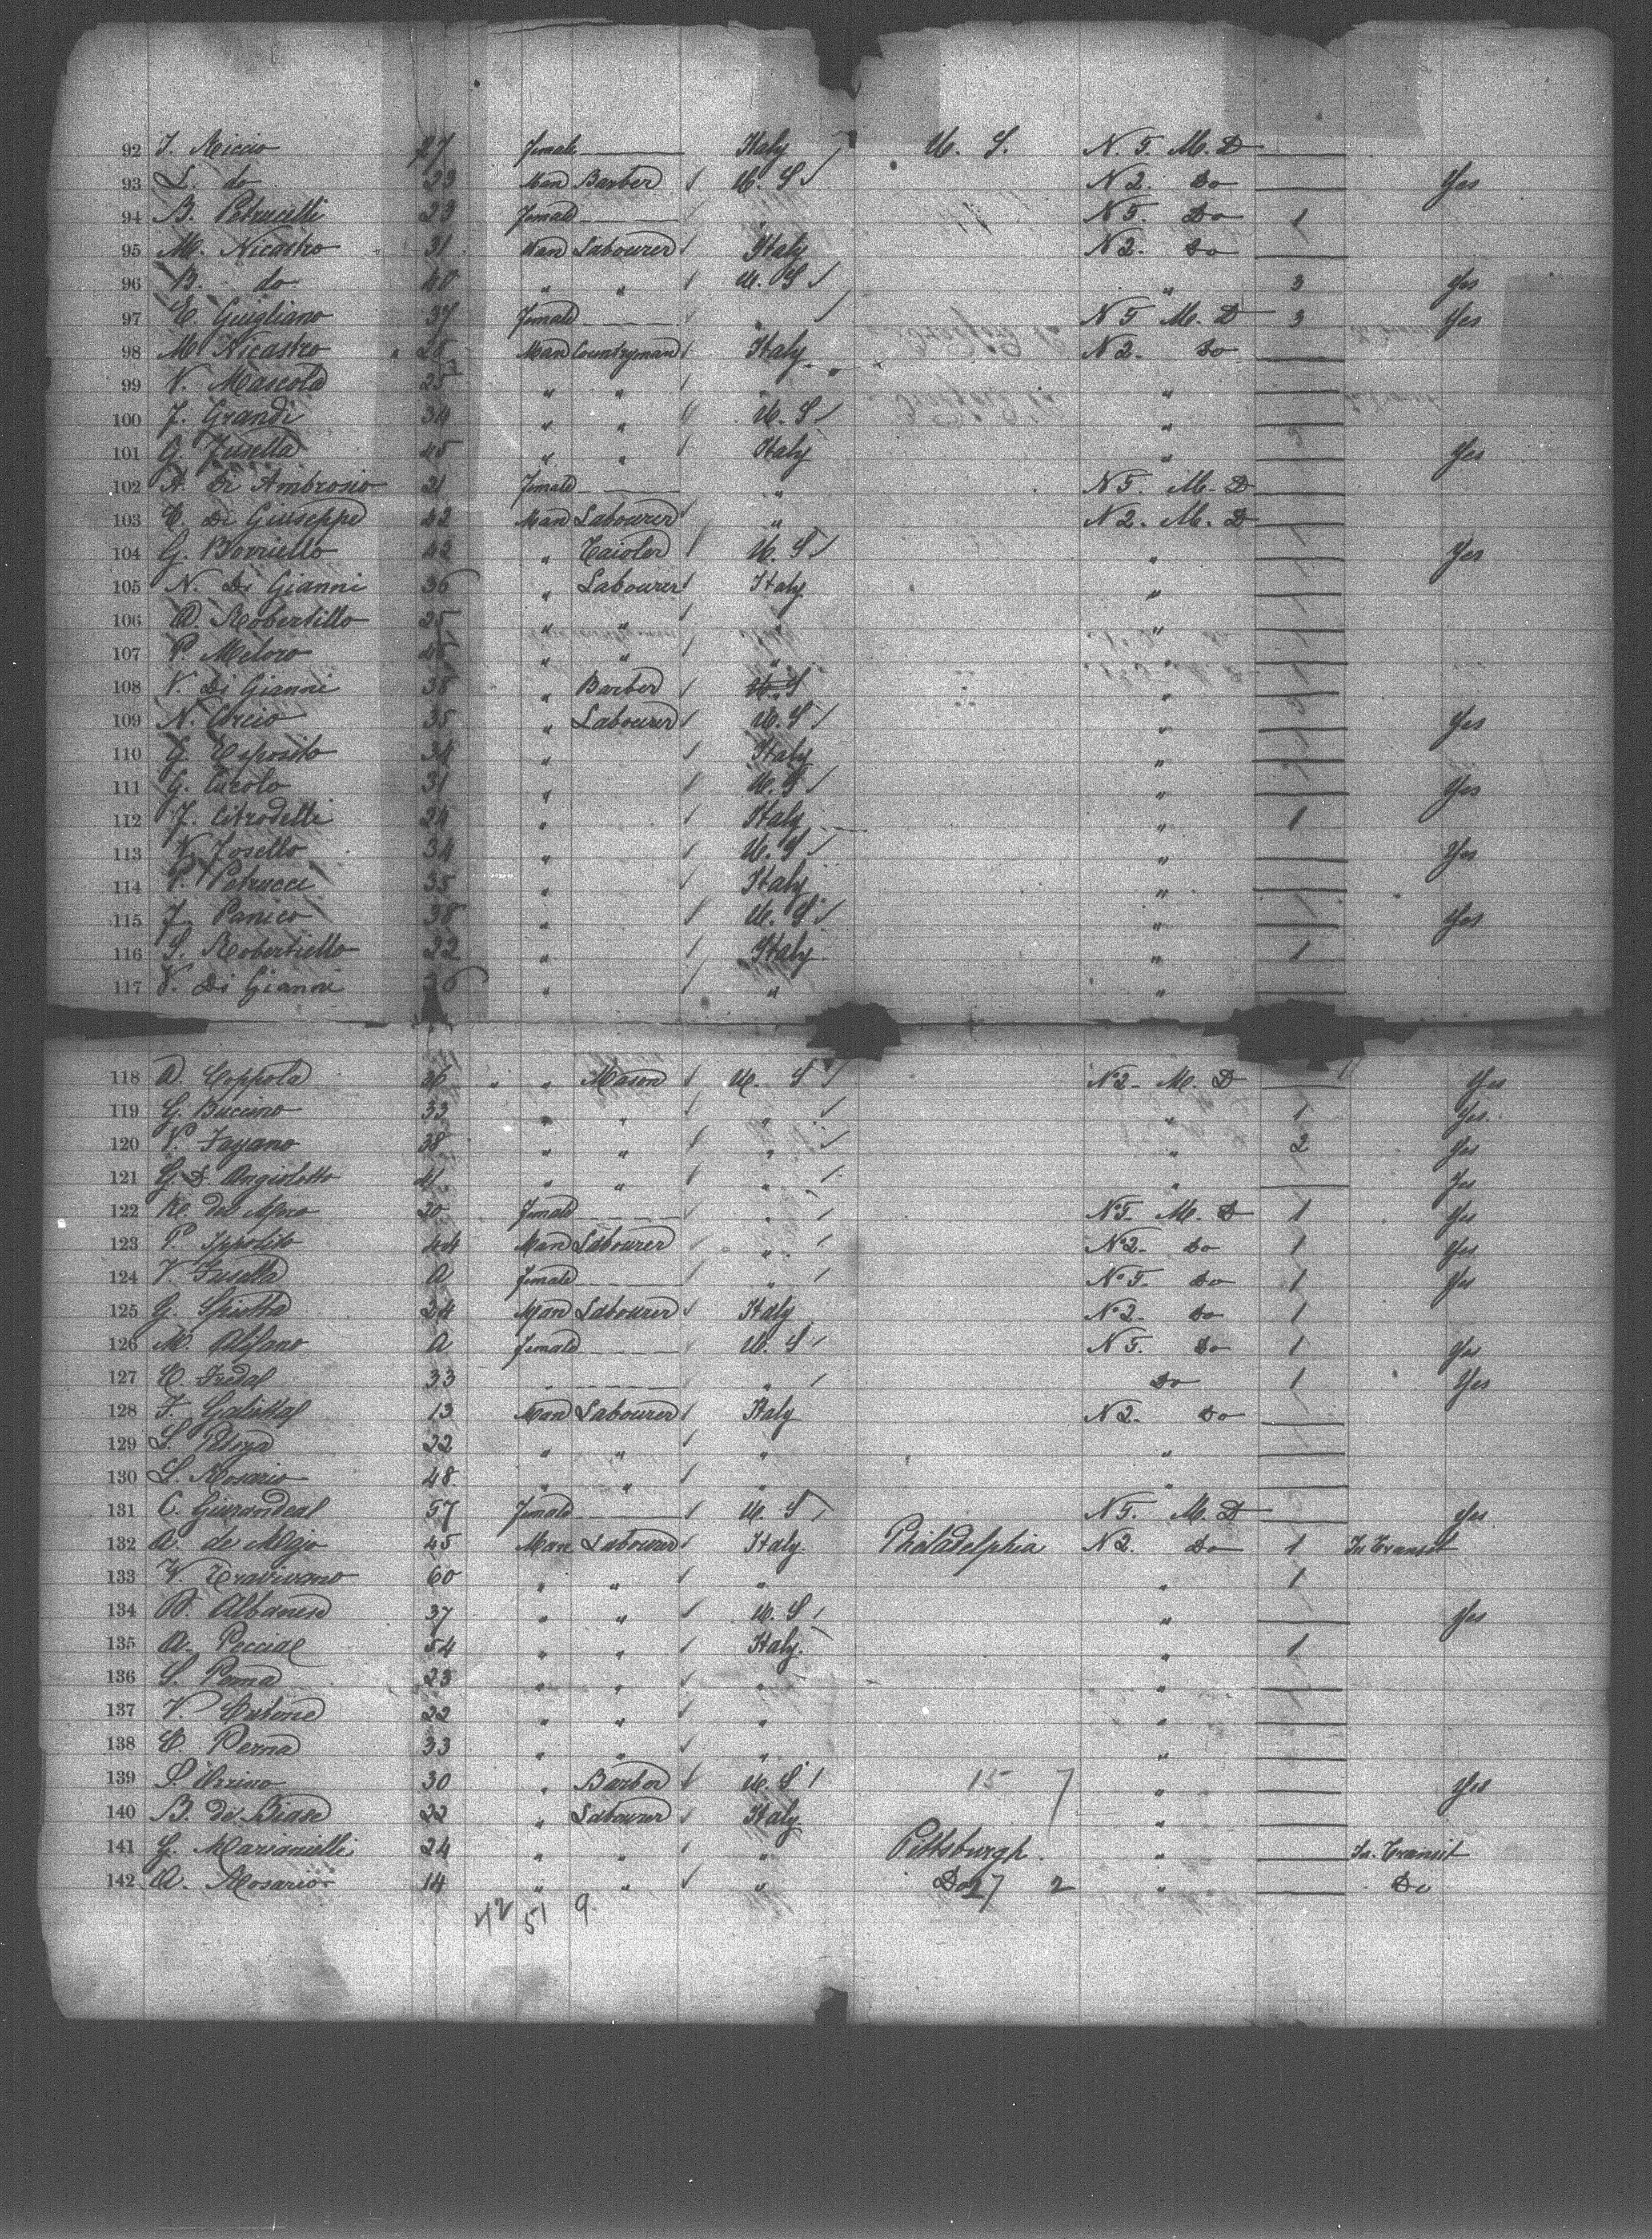 92 J. Riccio 27 female Italy U. S. N. 5. M. D
93 L. do 23 Man Barber U. S N 2. Do Yes
94 B. Petrucelli 23 female " N 5. Do 1
95 M. Nicastro 31 Man Labourer Italy N 2. Do
96 B. do 40 " " U. S " 3 Yes
97 E. Guigliano 37 female " N 5 M. D 3 Yes
98 M. Nicastro 28 Man Countryman Italy N 2. Do
99 V. Mascola 25 " " " "
100 F. Grandi 34 " " U. S "
101 G. Fusella 45 " " Italy " Yes
102 A. Di Ambrosio 21 female " N 5. M. D
103 C. Di Giuseppe 42 Man Labourer " N 2. M. D
104 G. Borriello 42 " Tailor U. S " Yes
105 N. Di Gianni 36 " Labourer Italy "
106 A. Robertillo 25 " " " "
107 P. Meloro 45 " " " "
108 V. Di Gianni 38 " Barber U. S "
109 N. Orcio 35 " Labourer U. S " Yes
110 G. Esposito 34 " Italy "
111 G. Cucolo 31 " U. S " Yes
112 F. Citrodelli 24 " Italy " 1
113 V. Fosello 34 " U. S " Yes
114 P. Petrucci 35 " Italy "
115 F. Panico 38 " U. S " Yes
116 S. Robertiello 22 " Italy " 1
117 V. Di Gianni 36 " " "
118 A. Coppola 36 " " Mason U. S N° 2. M. D Yes
119 G. Buccino 33 " " " " 1 Yes.
120 V. Fagano 38 " " " " 2 Yes
121 G. D. Angiolotto 41 " " " " Yes
122 20 female " N° 5. M. D 1 Yes
123 P. Ippolito 44 Man Labourer " N° 2. Do 1 Yes
124 V. Fusella A female " N° 5. Do 1 Yes
125 G. 24 Man Labourer Italy N° 2. Do 1
126 M. Alfano A female U. S N 5. Do 1 Yes
127 33 " " Do 1 Yes
128 F. 13 Man Labourer Italy N 2. Do
129 L. 22 " " " "
130 S. Rosario 48 " " " "
131 C. 57 female U. S N 5. M. D Yes
132 A. 45 Man Labourer Italy Philadelphia N 2. Do 1 In Transit
133 V. 60 " " " " 1
134 B. Albanese 37 " " U. S " Yes
135 A. 54 " " Italy. " 1
136 S. Perna 23 " " " "
137 V. 22 " " " "
138 C. Perna 33 " " " "
139 S. 30 " Barber U. S 15 7 " Yes
140 B. de Biase 22 " Labourer Italy "
141 G. Marianielli 24 " " " Pittsburgh. " In Transit
142 A. Rosario 14 " " " Do 27 2 " Do
42 51 9